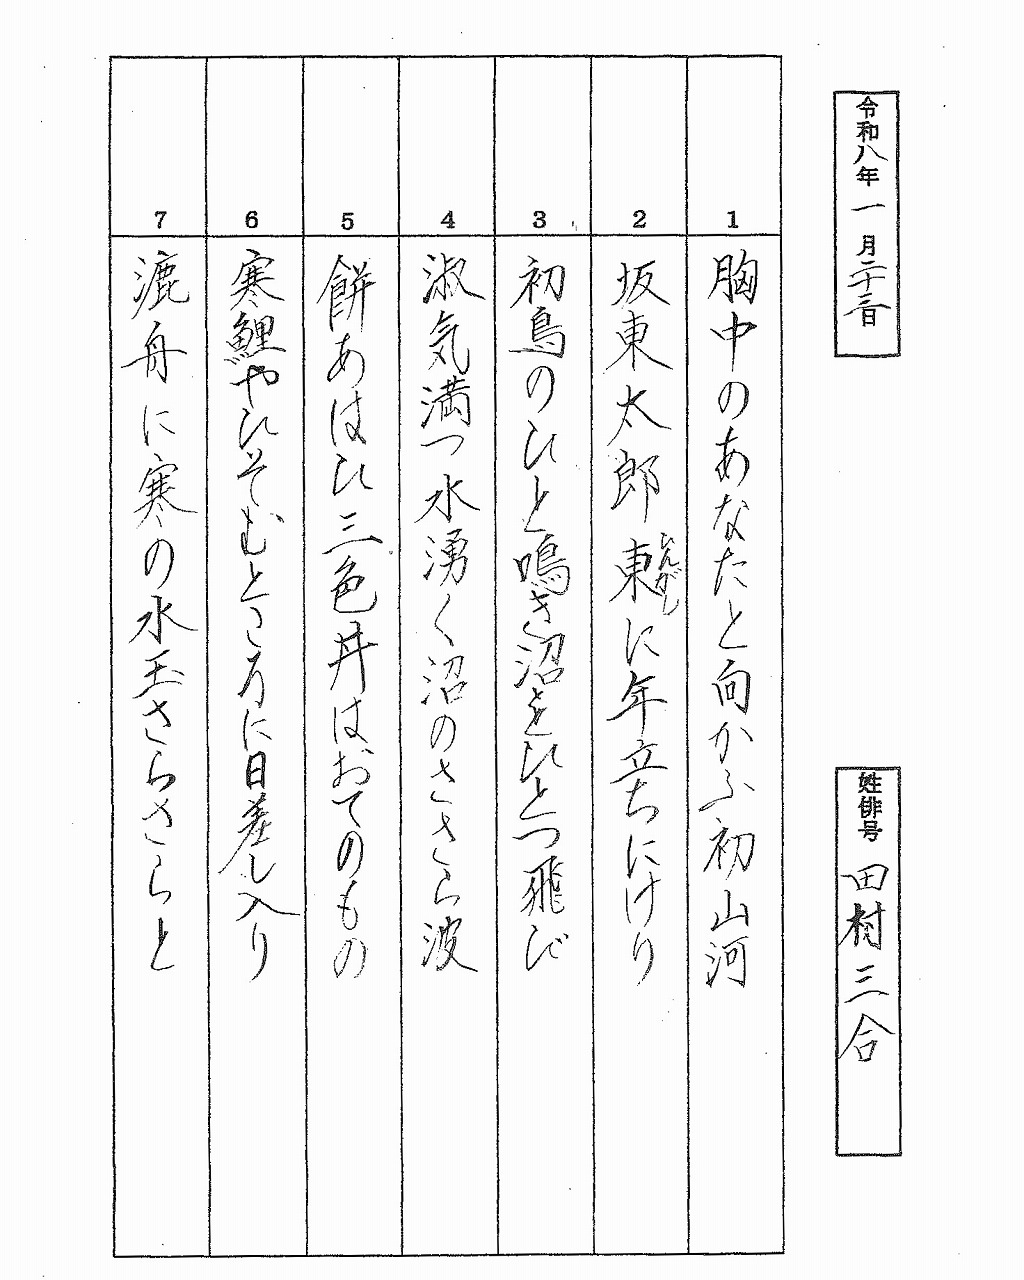 令和八年一月二十三日
姓俳号 田村三合
1 胸中のあなたと向かふ初山河
2 坂東太郎東に年立ちにけり
ひんがし
3 初鳥のひと鳴き沼をひとつ飛び
4 淑気満つ水湧く沼のささら波
5 餅あはひ三色丼はおてのもの
6 寒鯉やひそむところに日差し入り
7 漉舟に寒の水玉さらさらと